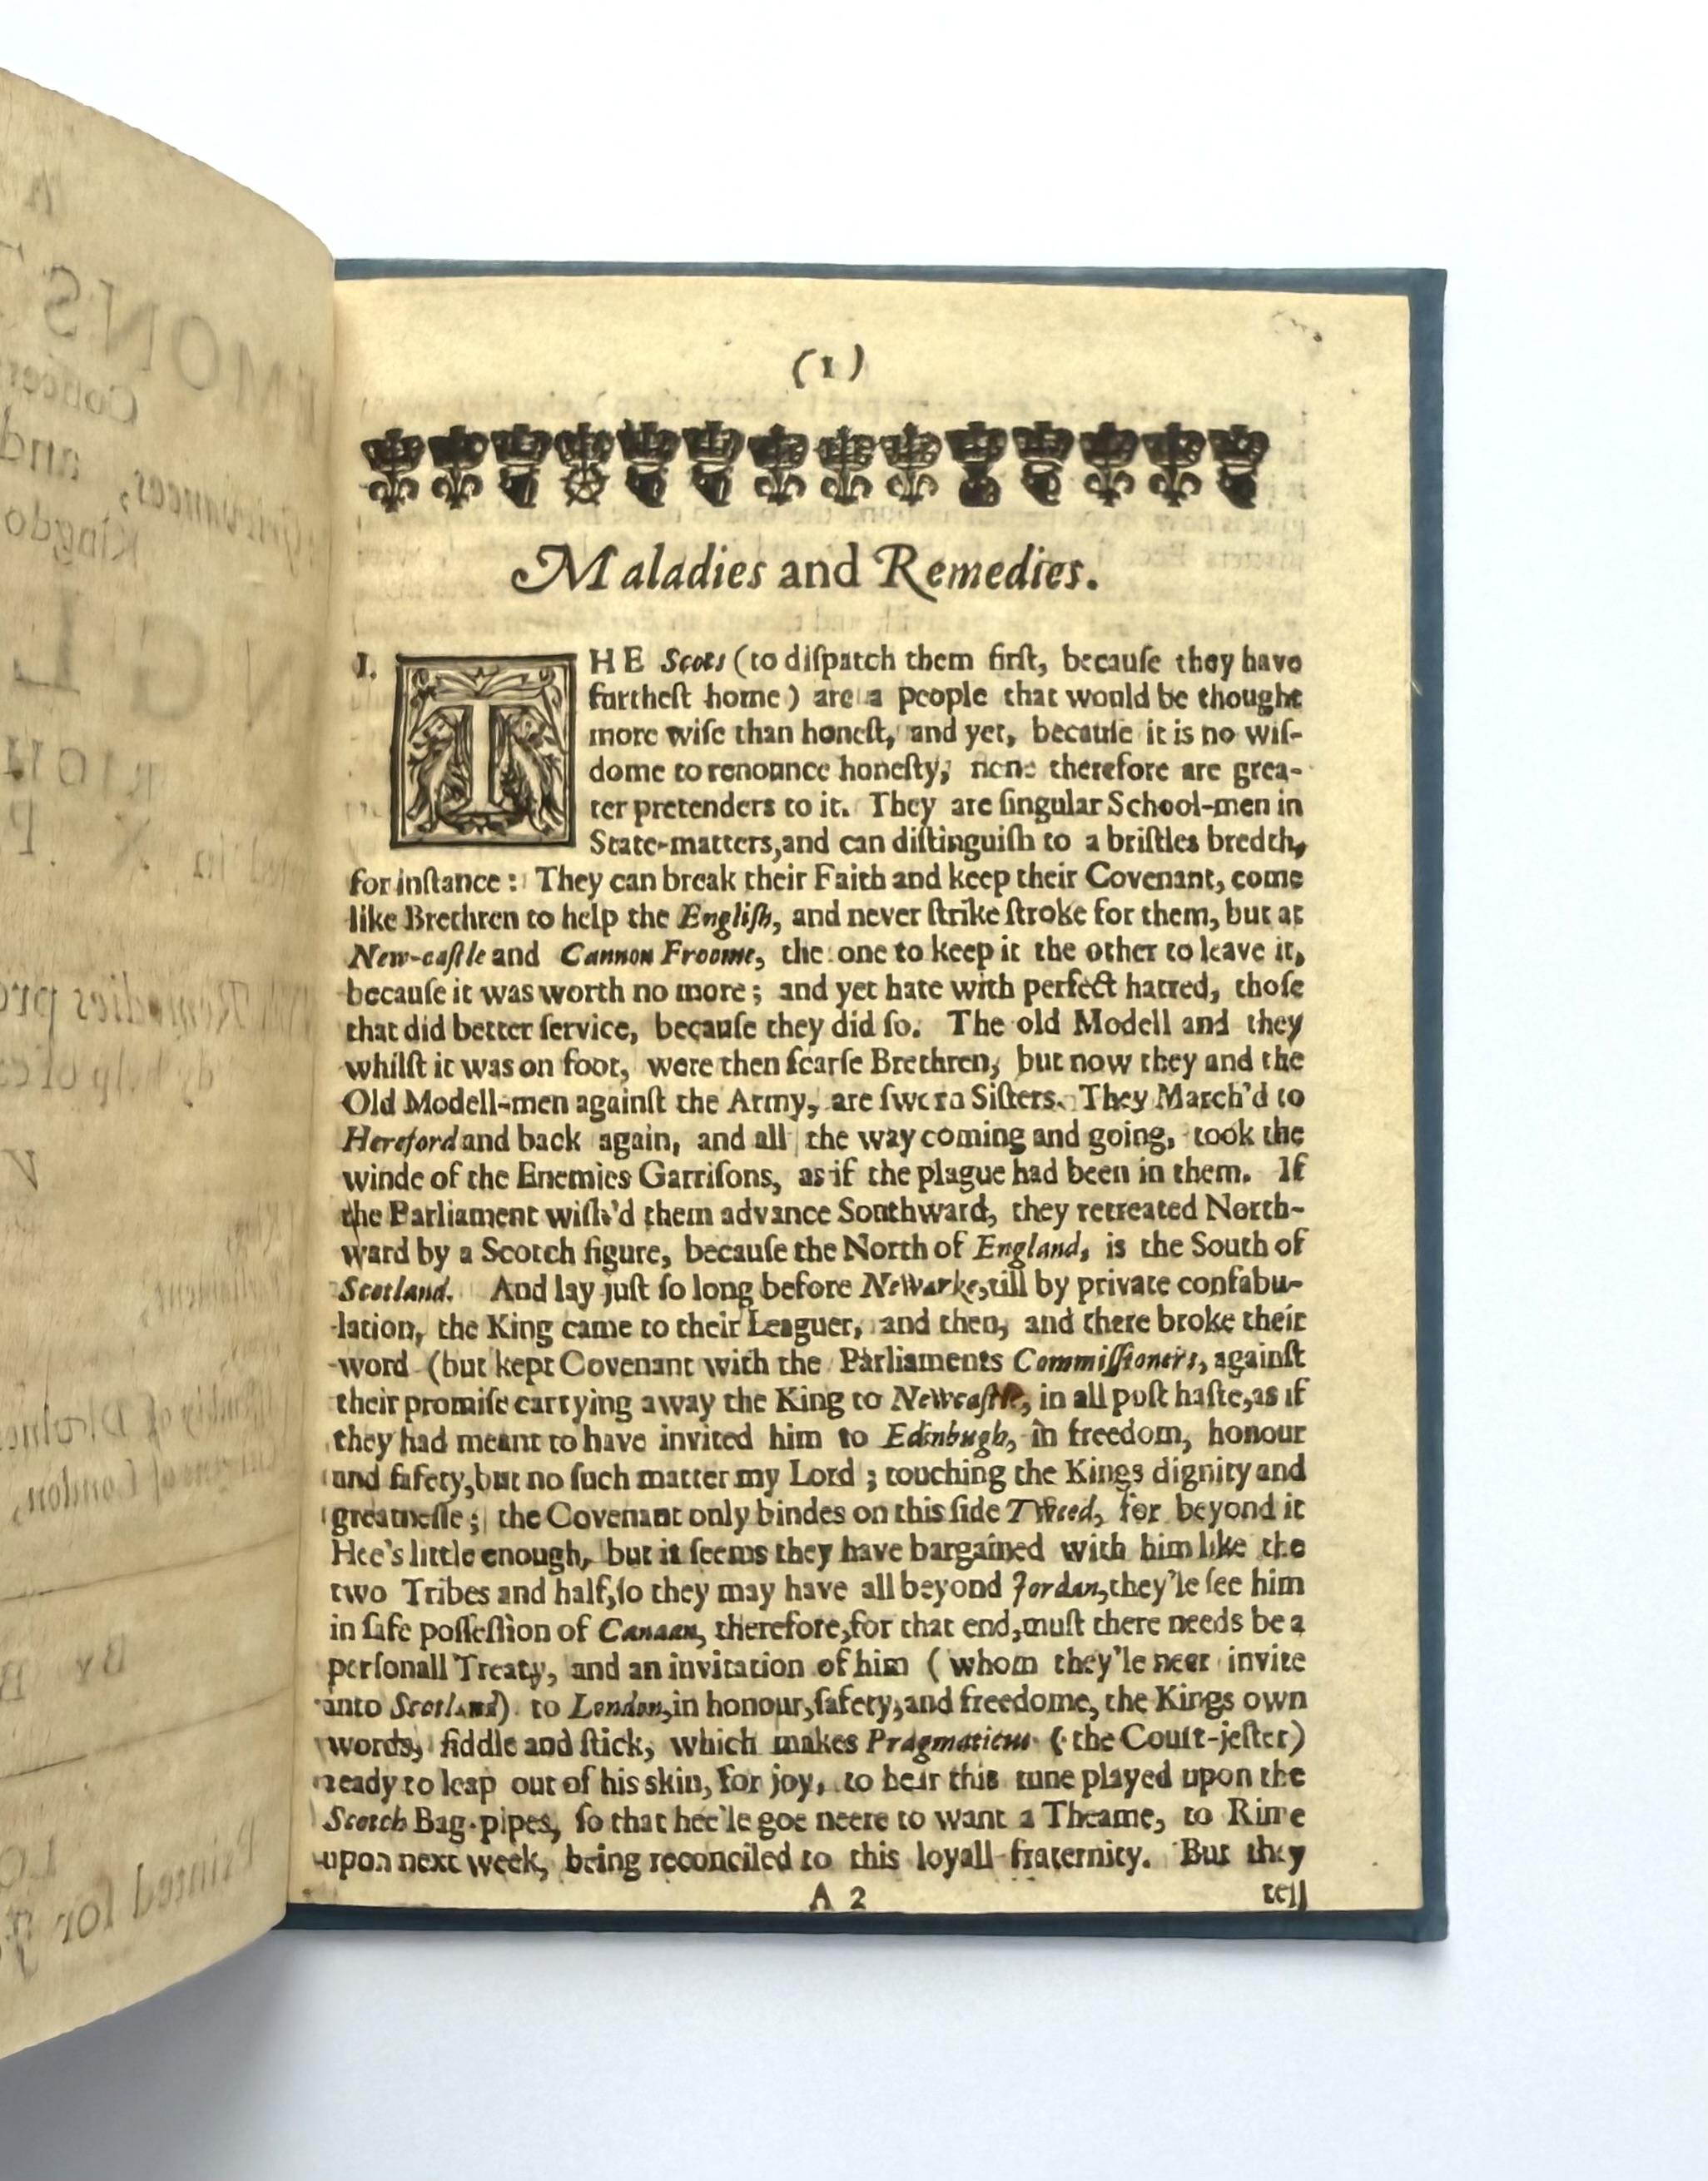 (1)
Maladies and Remedies.
1. THE Scots (to diſpatch them firſt, becauſe they have
furtheſt home) are a people that would be thought
more wiſe than honeſt, and yet, becauſe it is no wiſ-
dome to renounce honeſty, none therefore are grea-
ter pretenders to it. They are ſingular School-men in
State-matters,and can diſtinguiſh to a briſtles bredth,
for inſtance: They can break their Faith and keep their Covenant, come
like Brethren to help the Engliſh, and never ſtrike ſtroke for them, but at
New-caſtle and Cannon Froome, the one to keep it the other to leave it,
becauſe it was worth no more; and yet hate with perfect hatred, thoſe
that did better ſervice, becauſe they did ſo. The old Modell and they
whilſt it was on foot, were then ſcarſe Brethren, but now they and the
Old Modell-men againſt the Army, are ſworn Siſters. They March'd to
Hereford and back again, and all the way coming and going, took the
winde of the Enemies Garriſons, as if the plague had been in them. If
the Parliament wiſh'd them advance Southward, they retreated North-
ward by a Scotch figure, becauſe the North of England, is the South of
Scotland. And lay juſt ſo long before Newarke,till by private confabu-
lation, the King came to their Leaguer, and then, and there broke their
word (but kept Covenant with the Parliaments Commiſſioners, againſt
their promiſe carrying away the King to Newcaſtle, in all poſt haſte,as if
they had meant to have invited him to Edinbugh, in freedom, honour
and ſafety,but no ſuch matter my Lord; touching the Kings dignity and
greatneſſe; the Covenant only bindes on this ſide Tweed, for beyond it
Hee's little enough, but it ſeems they have bargained with him like the
two Tribes and half,ſo they may have all beyond Jordan,they'le ſee him
in ſafe poſſeſſion of Canaan, therefore,for that end,muſt there needs be a
perſonall Treaty, and an invitation of him (whom they'le neer invite
into Scotland) to London,in honour,ſafety,and freedome, the Kings own
words, fiddle and ſtick, which makes Pragmaticus (the Coult-jeſter)
ready to leap out of his skin, for joy, to hear this tune played upon the
Scotch Bag-pipes, ſo that hee'le goe neere to want a Theame, to Rime
upon next week, being reconciled to this loyall fraternity. But they
A 2
tell